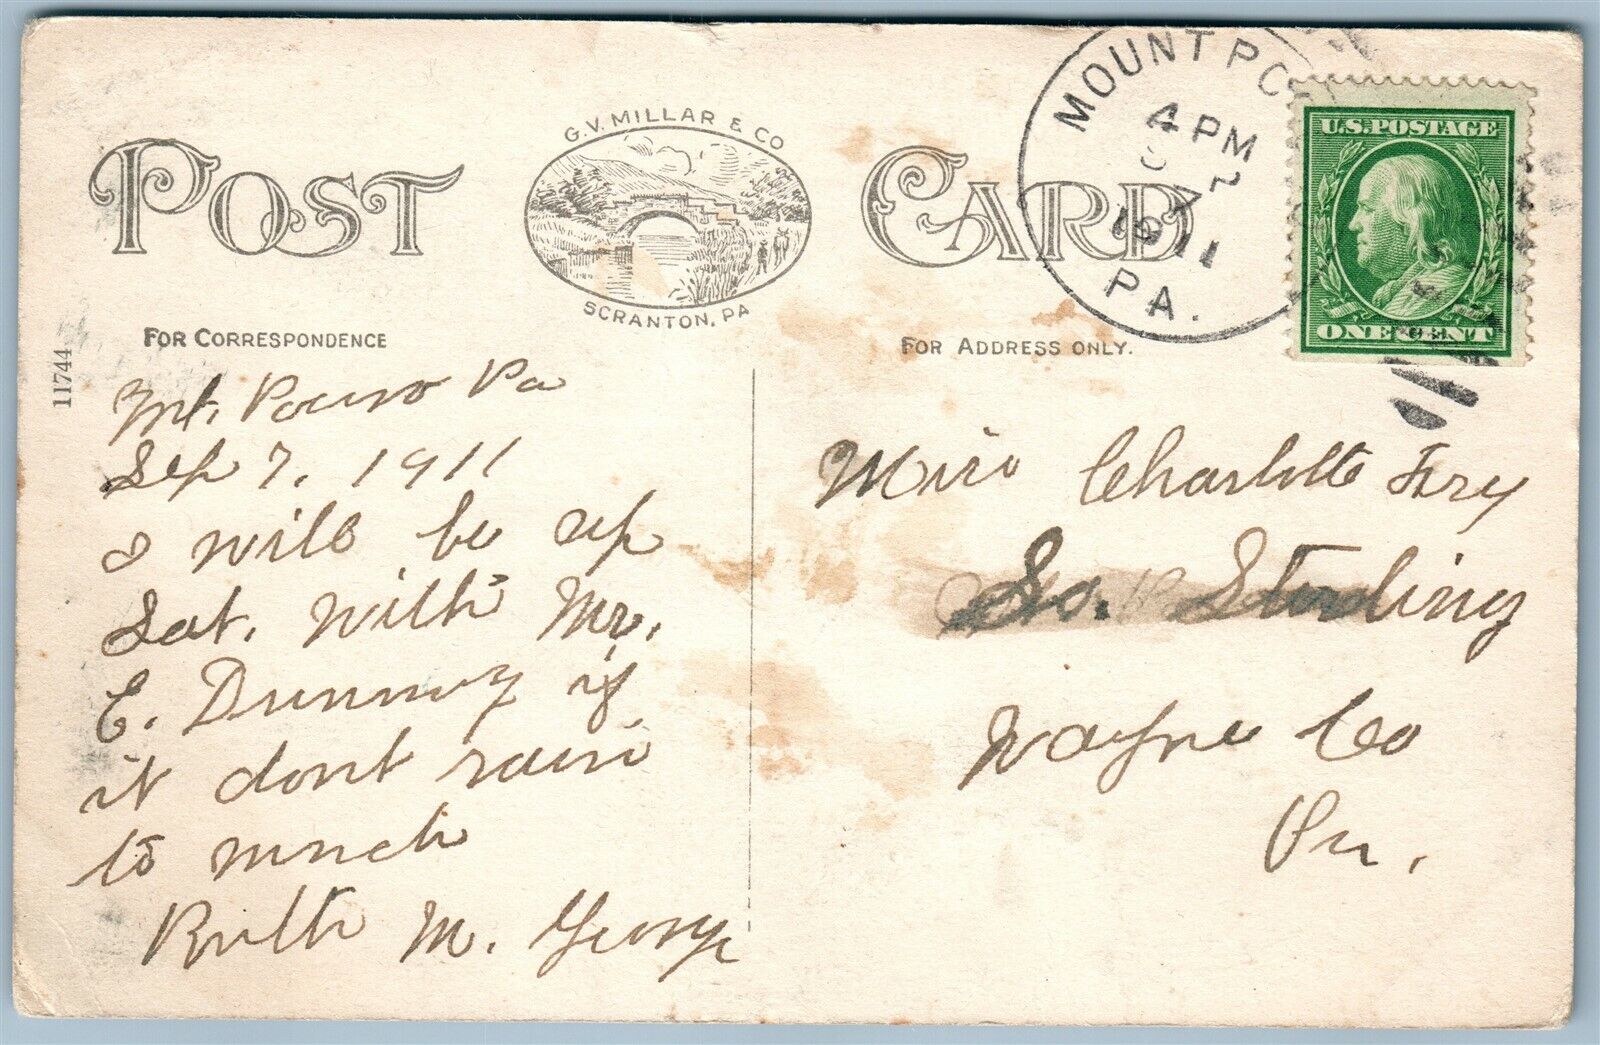 G.V. MILLAR & CO
POST CARD
SCRANTON, PA
MOUNT POC
4 PM
7
1911
PA.
U.S. POSTAGE
ONE CENT
FOR CORRESPONDENCE
FOR ADDRESS ONLY.
11744
Mt. Pocono Pa
Sep 7, 1911
I will be up
Sat. with Mr.
E. if
it dont rain
to much
Ruth M. George
Miss Charlotte Fry
So. Sterling
Wayne Co
Pa.